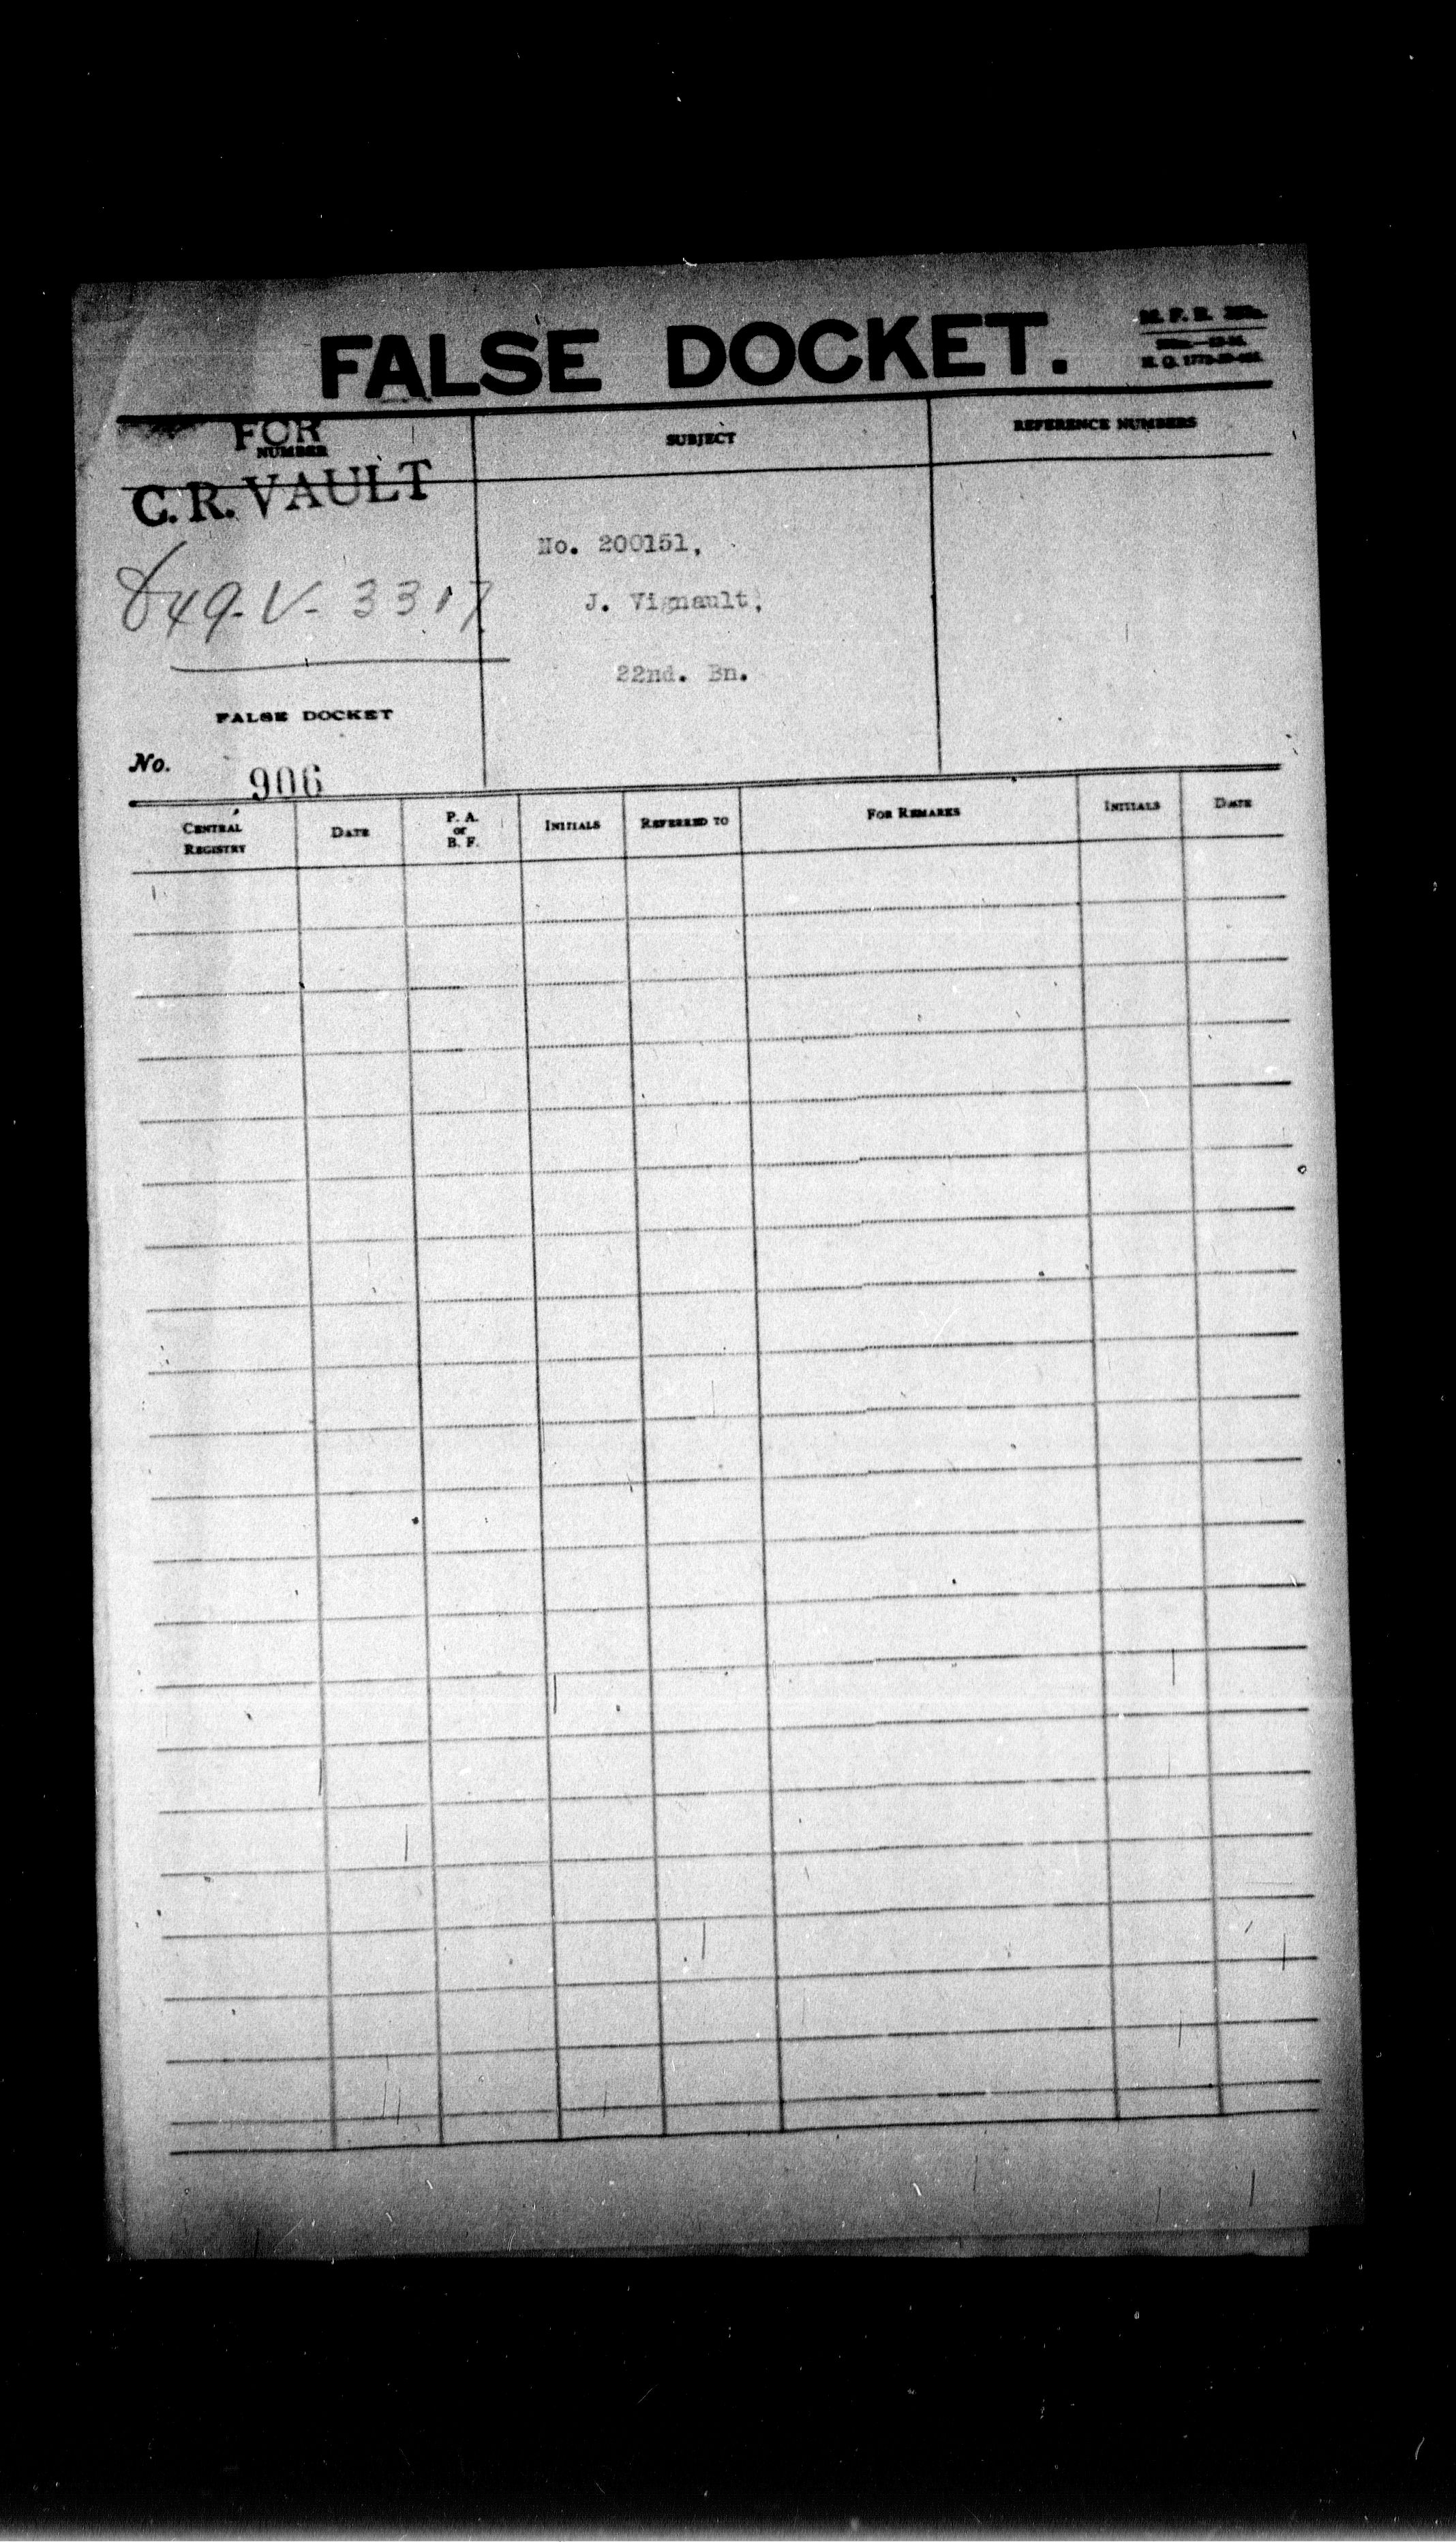 FALSE DOCKET.
FOR
NUMBER
C.R. VAULT
849-V-3317
FALSE DOCKET
No. 906
SUBJECT
No. 200151,
J. Vignault,
22nd. Bn.
REFERENCE NUMBERS
CENTRAL REGISTRY
DATE
P. A. or B. F.
INITIALS
REFERRED TO
FOR REMARKS
INITIALS
DATE